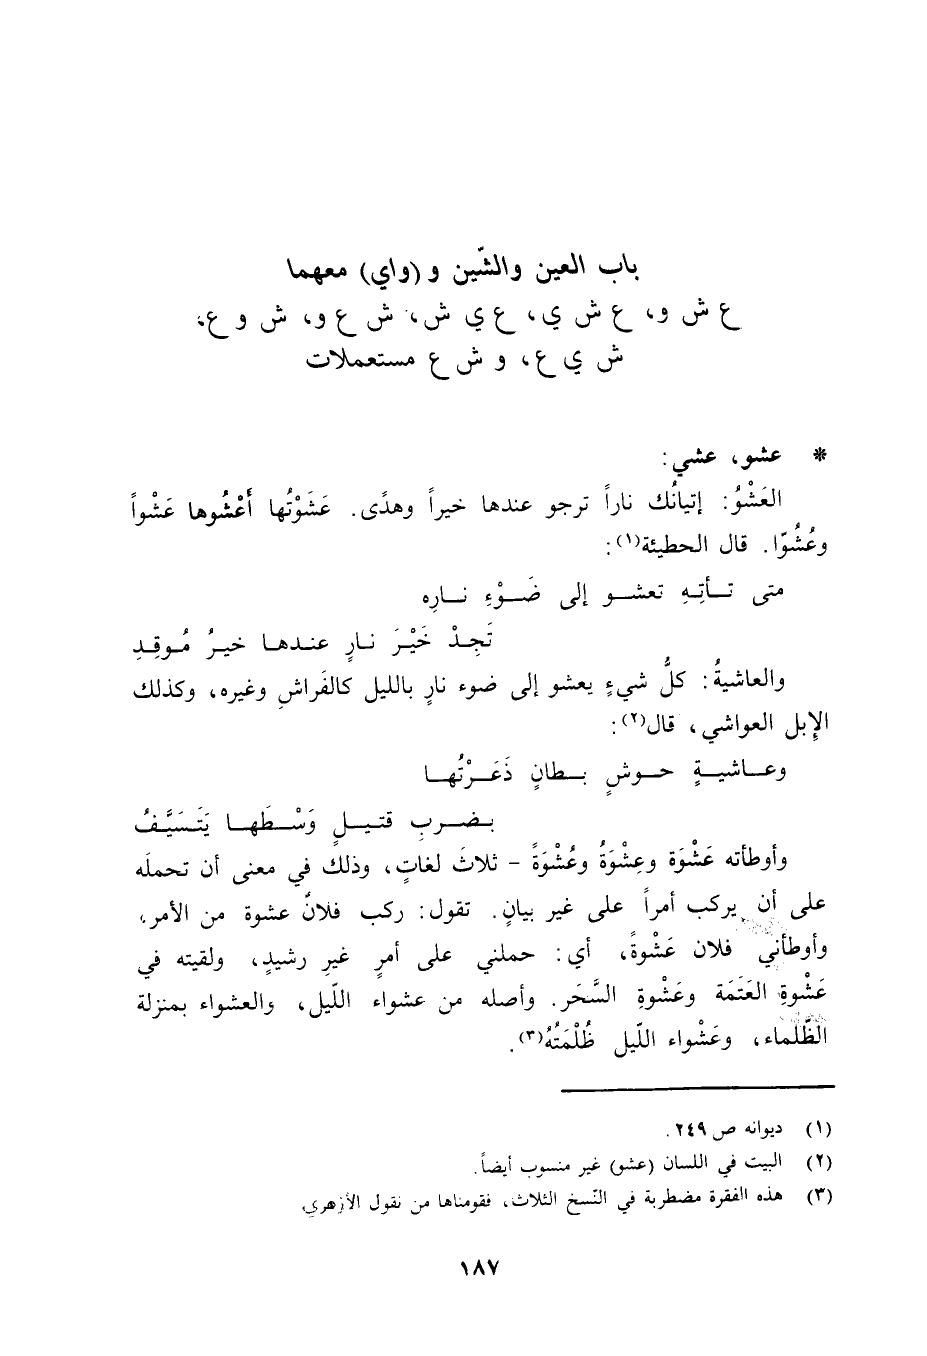 باب العين والشّين و (واي) معهما
ع ش و، ع ش ي، ع ي ش، ش ع و، ش و ع،
ش ي ع، و ش ع مستعملات
* عشو، عشي:
العَشْوُ: إتيانُك ناراً ترجو عندها خيراً وهدًى. عَشَوْتُها أَعْشُوها عَشْواً
وعُشُوّا. قال الحطيئة(١):
متى تـأتِـهِ تعشـو إلى ضَـوْءِ نـارِه
تَجِدْ خَيْرَ نـارٍ عنـدهـا خيـرُ مُـوقِـدِ
والعاشيةُ: كلُّ شيءٍ يعشو إلى ضوء نارٍ بالليل كالفَراشِ وغيره، وكذلك
الإبل العواشي، قال(٢):
وعـاشيـةٍ حـوشٍ بـطانٍ ذَعَـرْتُهـا
بـضـربِ قتيـلٍ وَسْـطَهـا يَتَسَيَّـفُ
وأوطأته عَشْوَة وعِشْوَةُ وعُشْوَةً - ثلاثَ لغاتٍ، وذلك في معنى أن تحملَه
على أن يركب أمراً على غير بيانٍ. تقول: ركب فلانٌ عشوة من الأمر،
وأوطأني فلان عَشْوةً، أي: حملني على أمرٍ غيرِ رشيدٍ، ولقيته في
عَشْوةِ العَتَمَة وعَشْوةِ السَّحَر. وأصله من عشواء اللّيل، والعشواء بمنزلة
الظَّلماء، وعَشْواء اللّيل ظُلْمَتُهُ(٣).
(١) ديوانه ص ٢٤٩.
(٢) البيت في اللسان (عشو) غير منسوب أيضاً.
(٣) هذه الفقرة مضطربة في النّسخ الثلاث، فقومناها من نقول الأزهري.
١٨٧